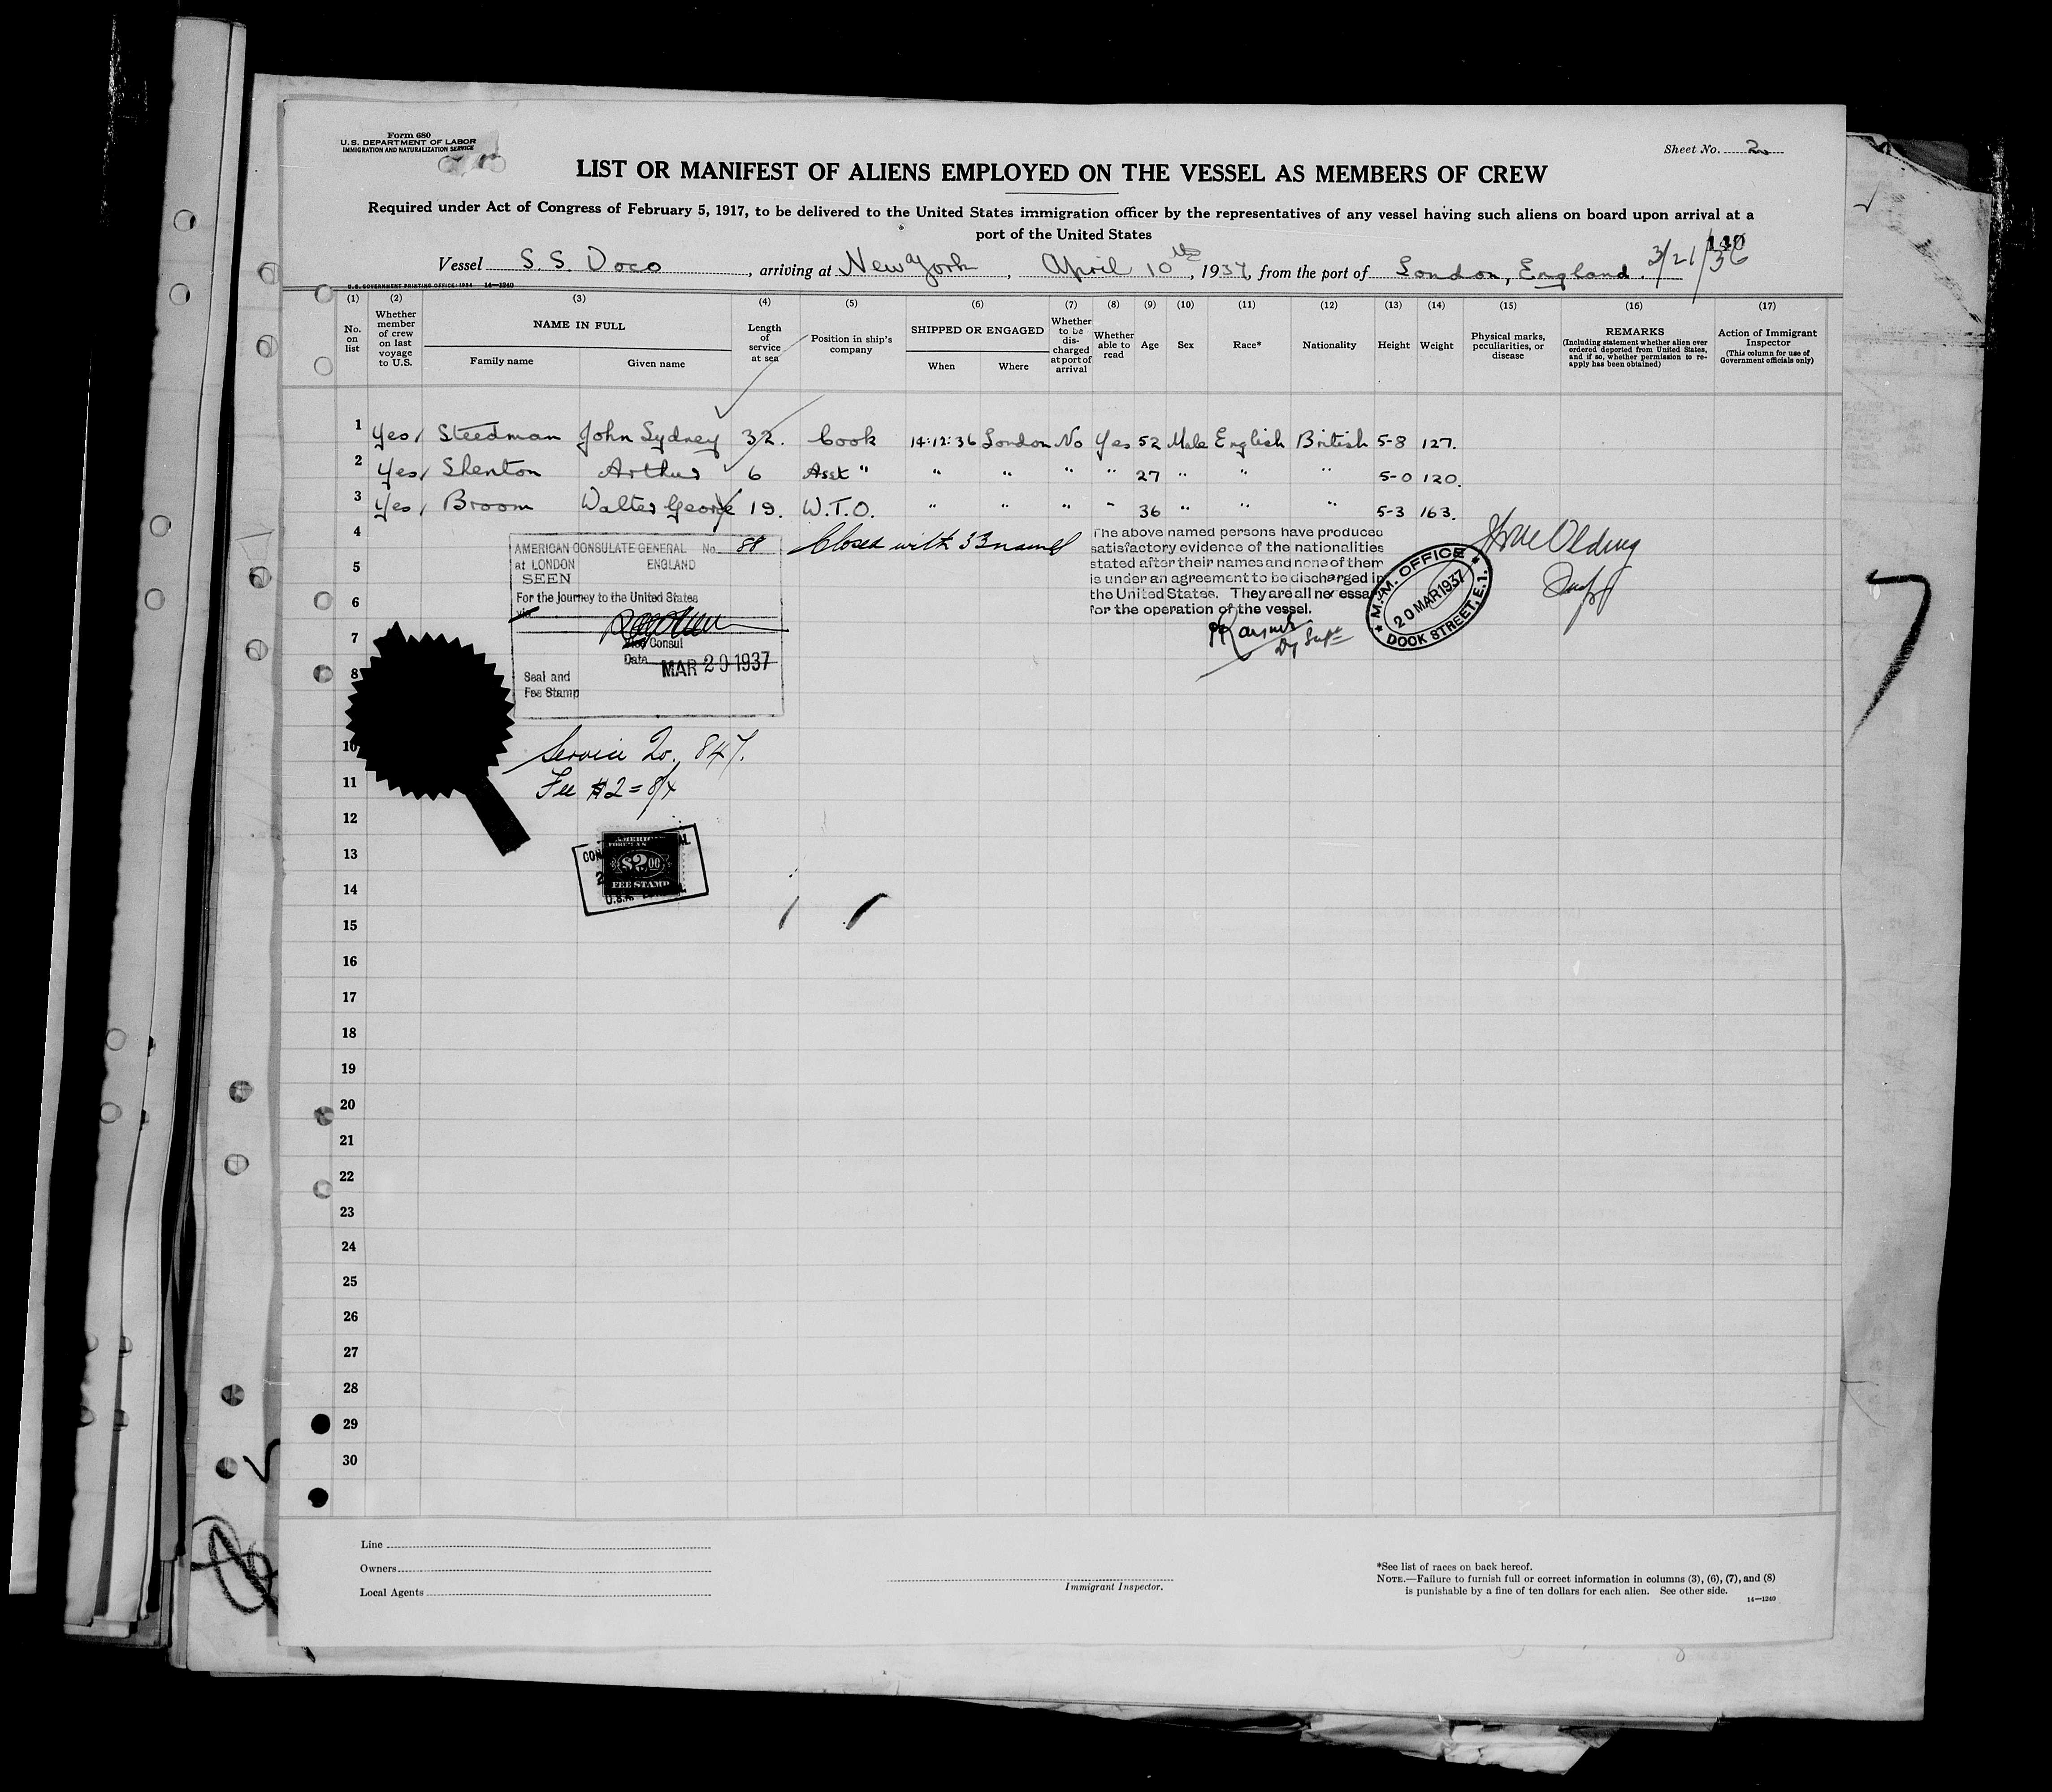 Form 680
U. S. DEPARTMENT OF LABOR
IMMIGRATION AND NATURALIZATION SERVICE
Sheet No. 2
LIST OR MANIFEST OF ALIENS EMPLOYED ON THE VESSEL AS MEMBERS OF CREW
Required under Act of Congress of February 5, 1917, to be delivered to the United States immigration officer by the representatives of any vessel having such aliens on board upon arrival at a
port of the United States
110
Vessel S. S. Doco, arriving at New York, April 10th, 1937, from the port of London, England. 3/21/36
U. S. GOVERNMENT PRINTING OFFICE: 1934 14—1240
(1) (2) (3) (4) (5) (6) (7) (8) (9) (10) (11) (12) (13) (14) (15) (16) (17)
No. on list
Whether member of crew on last voyage to U.S.
NAME IN FULL
Family name
Given name
Length of service at sea
Position in ship's company
SHIPPED OR ENGAGED
When
Where
Whether to be discharged at port of arrival
Whether able to read
Age
Sex
Race*
Nationality
Height
Weight
Physical marks, peculiarities, or disease
REMARKS
(Including statement whether alien ever ordered deported from United States, and if so, whether permission to reapply has been obtained)
Action of Immigrant Inspector
(This column for use of Government officials only)
1 Yes Steedman John Sydney 32. Cook 14:12:36 London No Yes 52 Male English British 5-8 127.
2 Yes Shenton Arthur 6 Asst " " " " " 27 " " " 5-0 120.
3 Yes Broom Walter George 19. W.T.O. " " " " 36 " " " 5-3 163.
4
5
6
7
8
10
11
12
13
14
15
16
17
18
19
20
21
22
23
24
25
26
27
28
29
30
AMERICAN CONSULATE GENERAL No. 88
at LONDON ENGLAND
SEEN
For the journey to the United States
via
Vice Consul
Date MAR 20 1937
Seal and
Fee Stamp
Closed with 33 names
The above named persons have produced
satisfactory evidence of the nationalities
stated after their names and none of them
is under an agreement to be discharged in
the United States. They are all necessa
for the operation of the vessel.
Dy Supt
M.M. OFFICE
20 MAR 1937
DOCK STREET, E.1.
Olding
Service No. 847.
Fee $2 = 8/4
AMERICAN
FOREIGN
$2.00
FEE STAMP
Line
Owners
Local Agents
Immigrant Inspector.
*See list of races on back hereof.
NOTE.—Failure to furnish full or correct information in columns (3), (6), (7), and (8)
is punishable by a fine of ten dollars for each alien. See other side.
14—1240